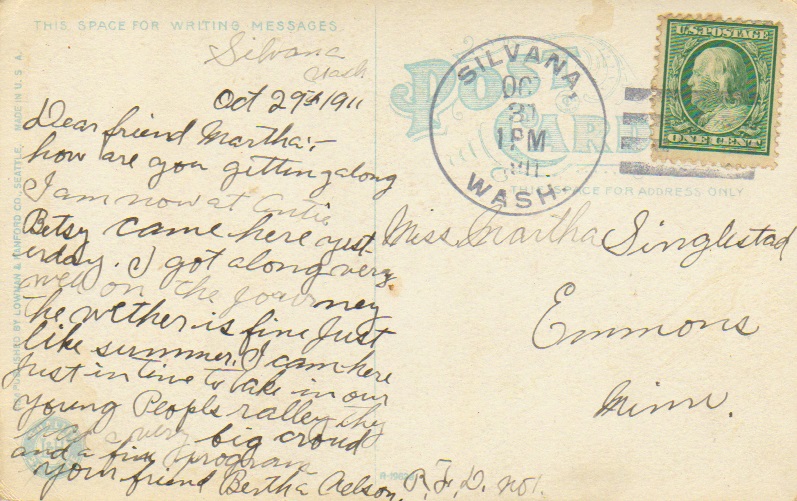 THIS SPACE FOR WRITING MESSAGES
Silvana
Wash
Oct 29th 1911
Dear friend Martha:-
how are you getting along
I am now at
Betsy came here yest
erday. I got along very
well on the journey
the wether is fine just
like summer. I cam here
just in time to take in our
young Peopls ralley they
a very big croud
and a fine program
your friend Bertha
PUBLISHED BY LOWMAN & HANFORD CO., SEATTLE. MADE IN U. S. A.
POST CARD
SILVANA,
OCT
31
1 PM
WASH.
U.S. POSTAGE
ONE CENT
THIS SPACE FOR ADDRESS ONLY
Miss Martha Singlestad
Emmons
Minn.
R.F.D. no 1.